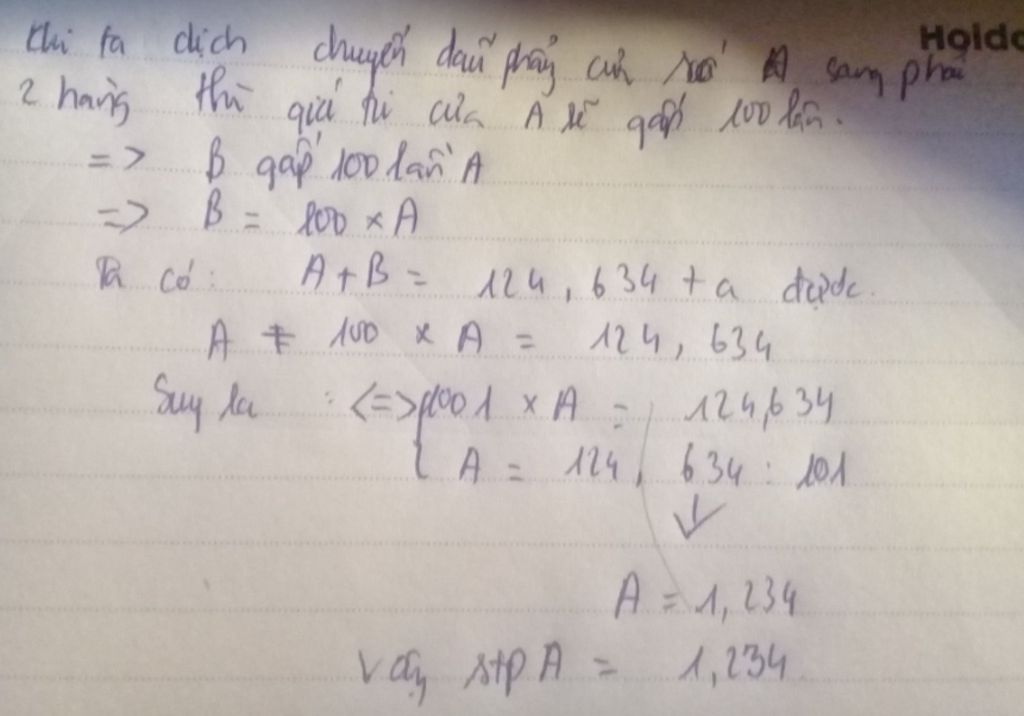 Holdo
Khi ta dịch chuyển dấu phẩy của số A sang phải
2 hàng thì giá trị của A sẽ gấp 100 lần.
=> B gấp 100 lần A
=> B = 100 x A
Ta có: A + B = 124,634 + a được.
A + 100 x A = 124,634
Suy ra : <=> 1001 x A = 124,634
A = 124,634 : 101
A = 1,234
Vậy stp A = 1,234